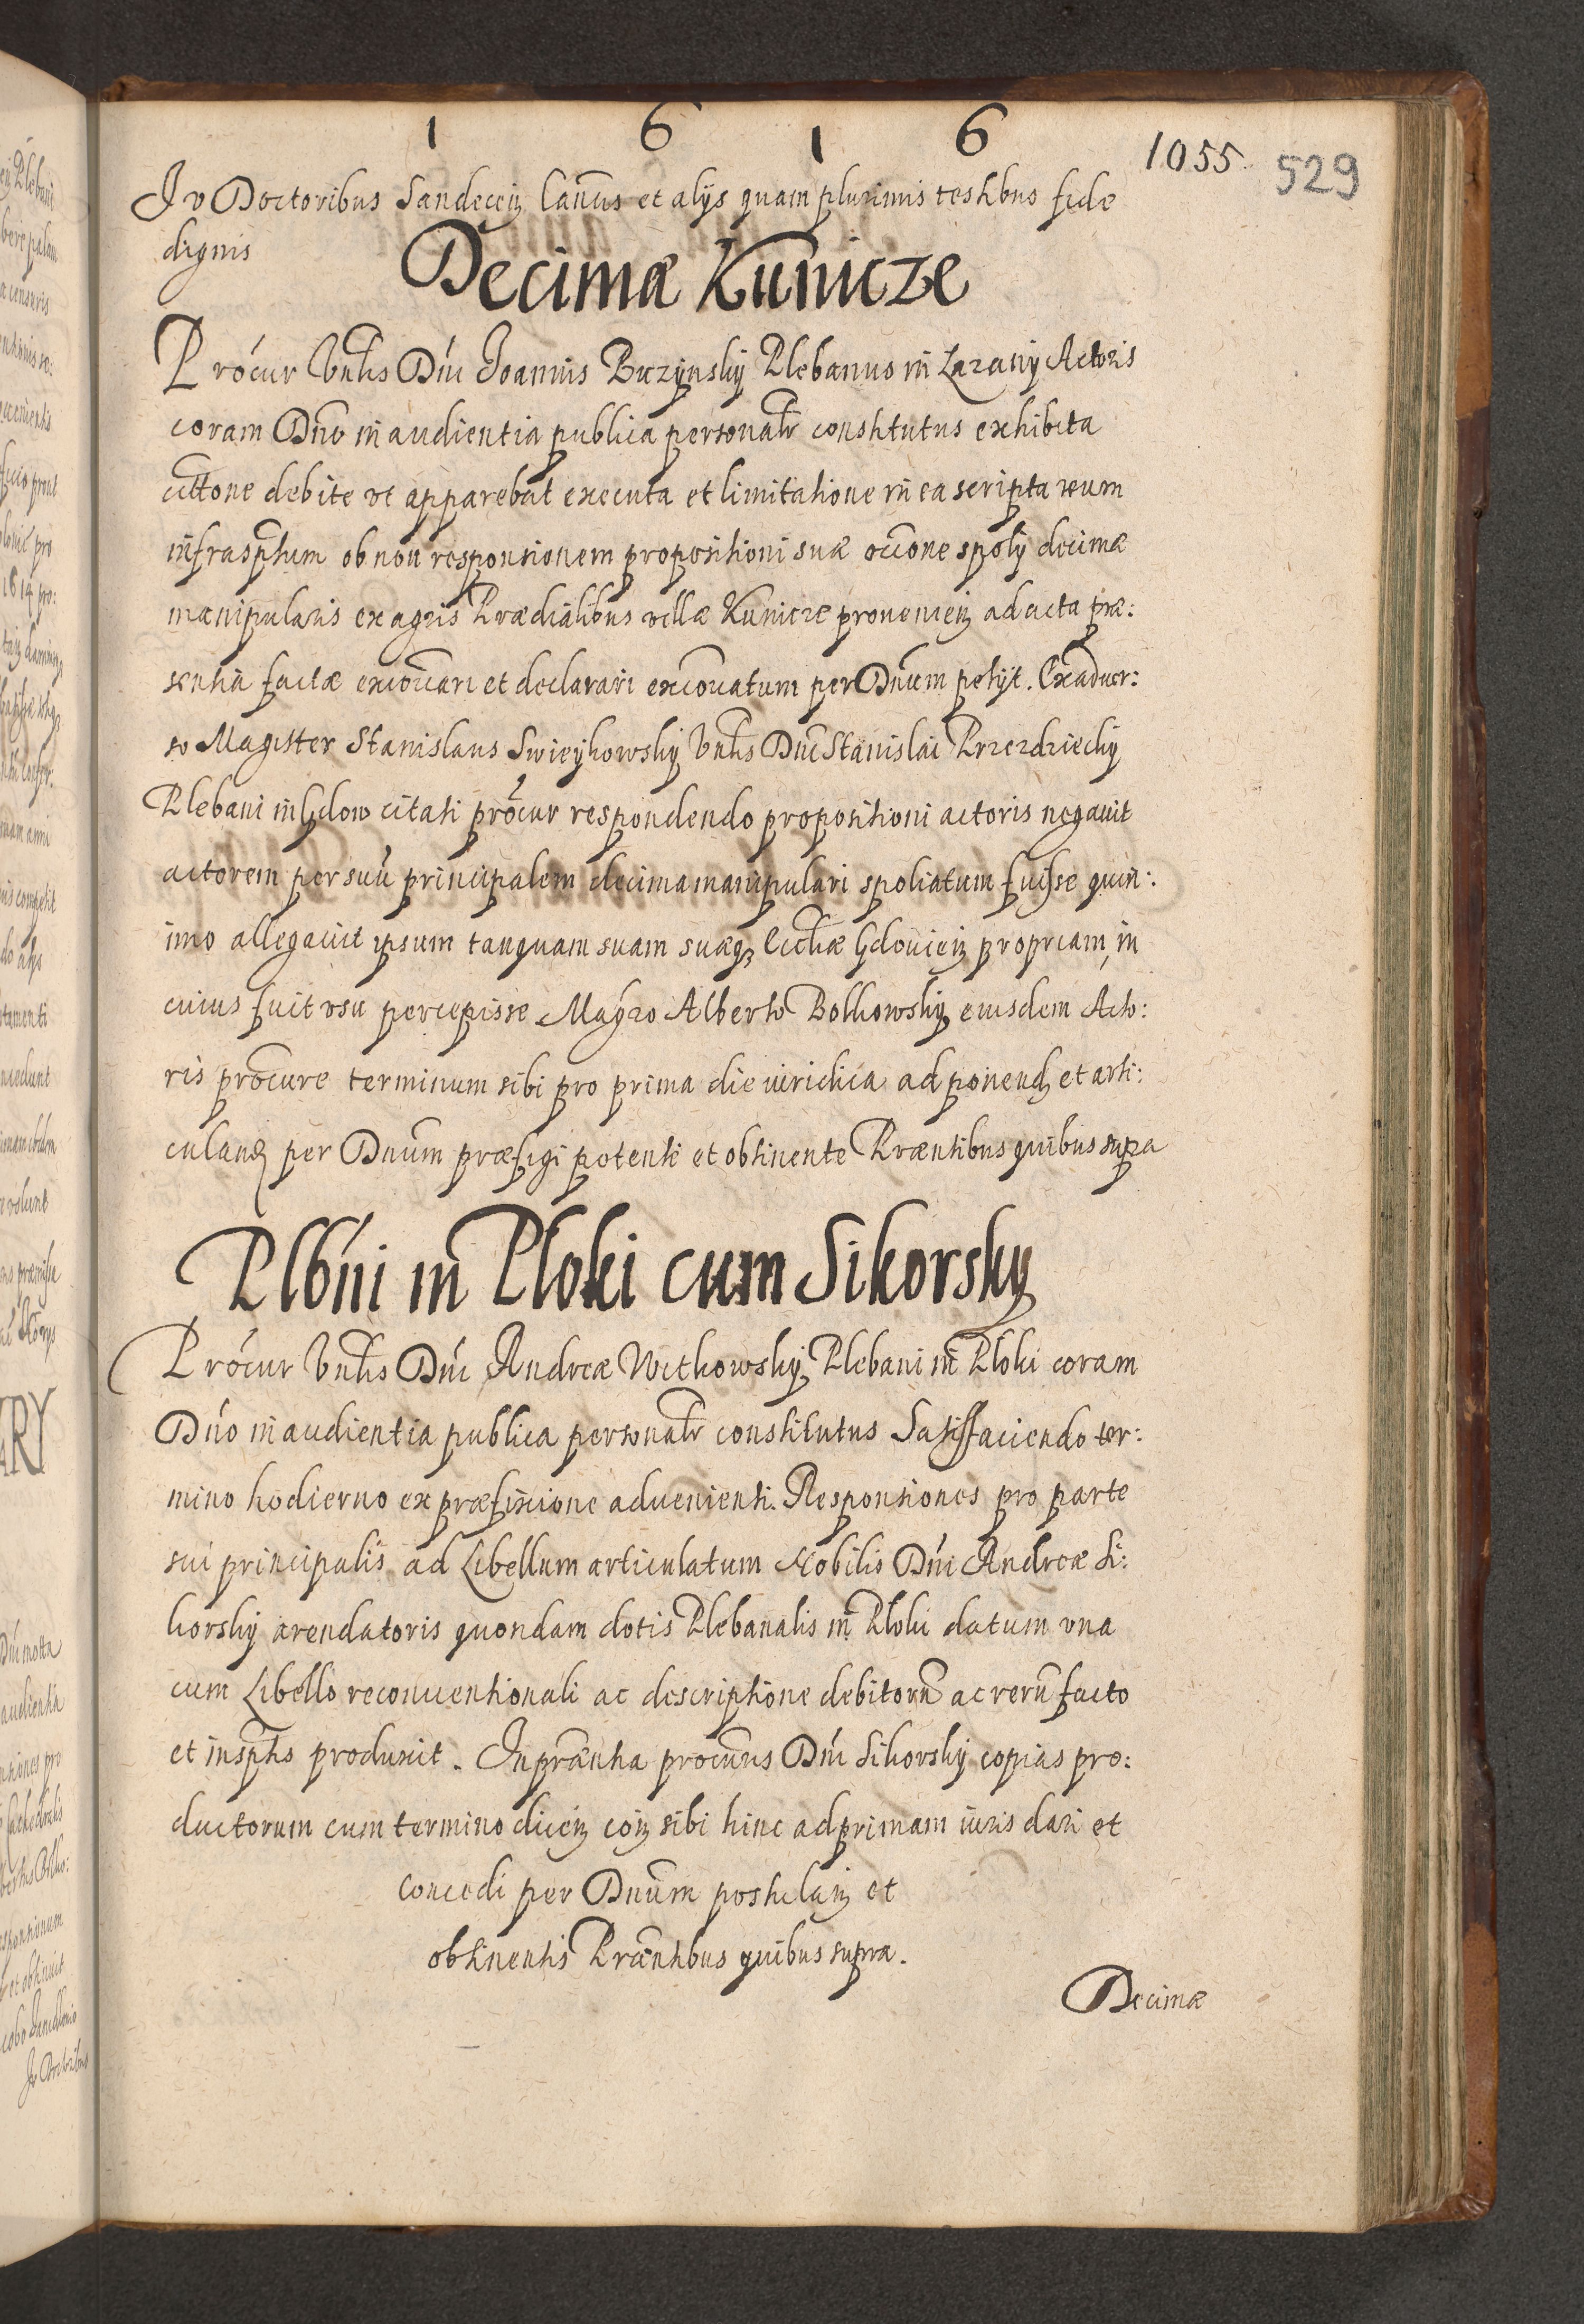 1 6 1 6
1055.
529
Iu Doctoribus Sandecen Canıcis et alijs quam plurimis testibus fide
dignis
Decimæ Kunicze
Procur Vnlis Dni Joannis Buczynsky Plebanus in Lazany Actoris
coram Dno in audientia publica personalr constitutus exhibita
cittone debite vt apparebat executa et limitatione in ea scripta reum
infrasptum ob non responsionem propositioni suæ occone spolij decimæ
manipularis ex agris Prædialibus villæ Kunicze prouenien ad acta præ:
sentia factæ excoicari et declarari excoicatum per Dnum petijt. Ex aduer:
so Magister Stanislaus Swieykowsky Vnlis Dni Stanislai Przezdziecky
Plebani in Gdow citati procur respondendo propositioni actoris negauit
actorem per suu principalem decima manipulari spoliatum fuisse quin:
imo allegauit ipsum tanquam suam suæq Eccliæ Gdouien propriam, in
cuius fuit vsu percepisse Magro Alberto Bolkowsky eiusdem Acto:
ris procure terminum sibi pro prima die iuridica ad ponend et arti:
culand per Dnum præfigi petenti et obtinente Præntibus quibus supra
Plbni in Ploki cum Sikorsky
Procur Vnlis Dni Andreæ Witkowsky Plebani in Ploki coram
Dno in audientia publica personalr constitutus Satisfaciendo ter:
mino hodierno ex præfixione aduenienti. Responsiones pro parte
sui principalis ad Libellum articulatum Nobilis Dni Andreæ Si:
korsky arendatoris quondam dotis Plebanalis in Ploki datum vna
cum Libello reconuentionali ac descriptione debitoru ac reru facto
et insptis produxit. In præntia procuris Dni Sikorsky copias pro:
ductorum cum termino dicen con sibi hinc ad primam iuris dari et
concedi per Dnum postulan et
obtinentis Præntibus quibus supra.
Decimæ